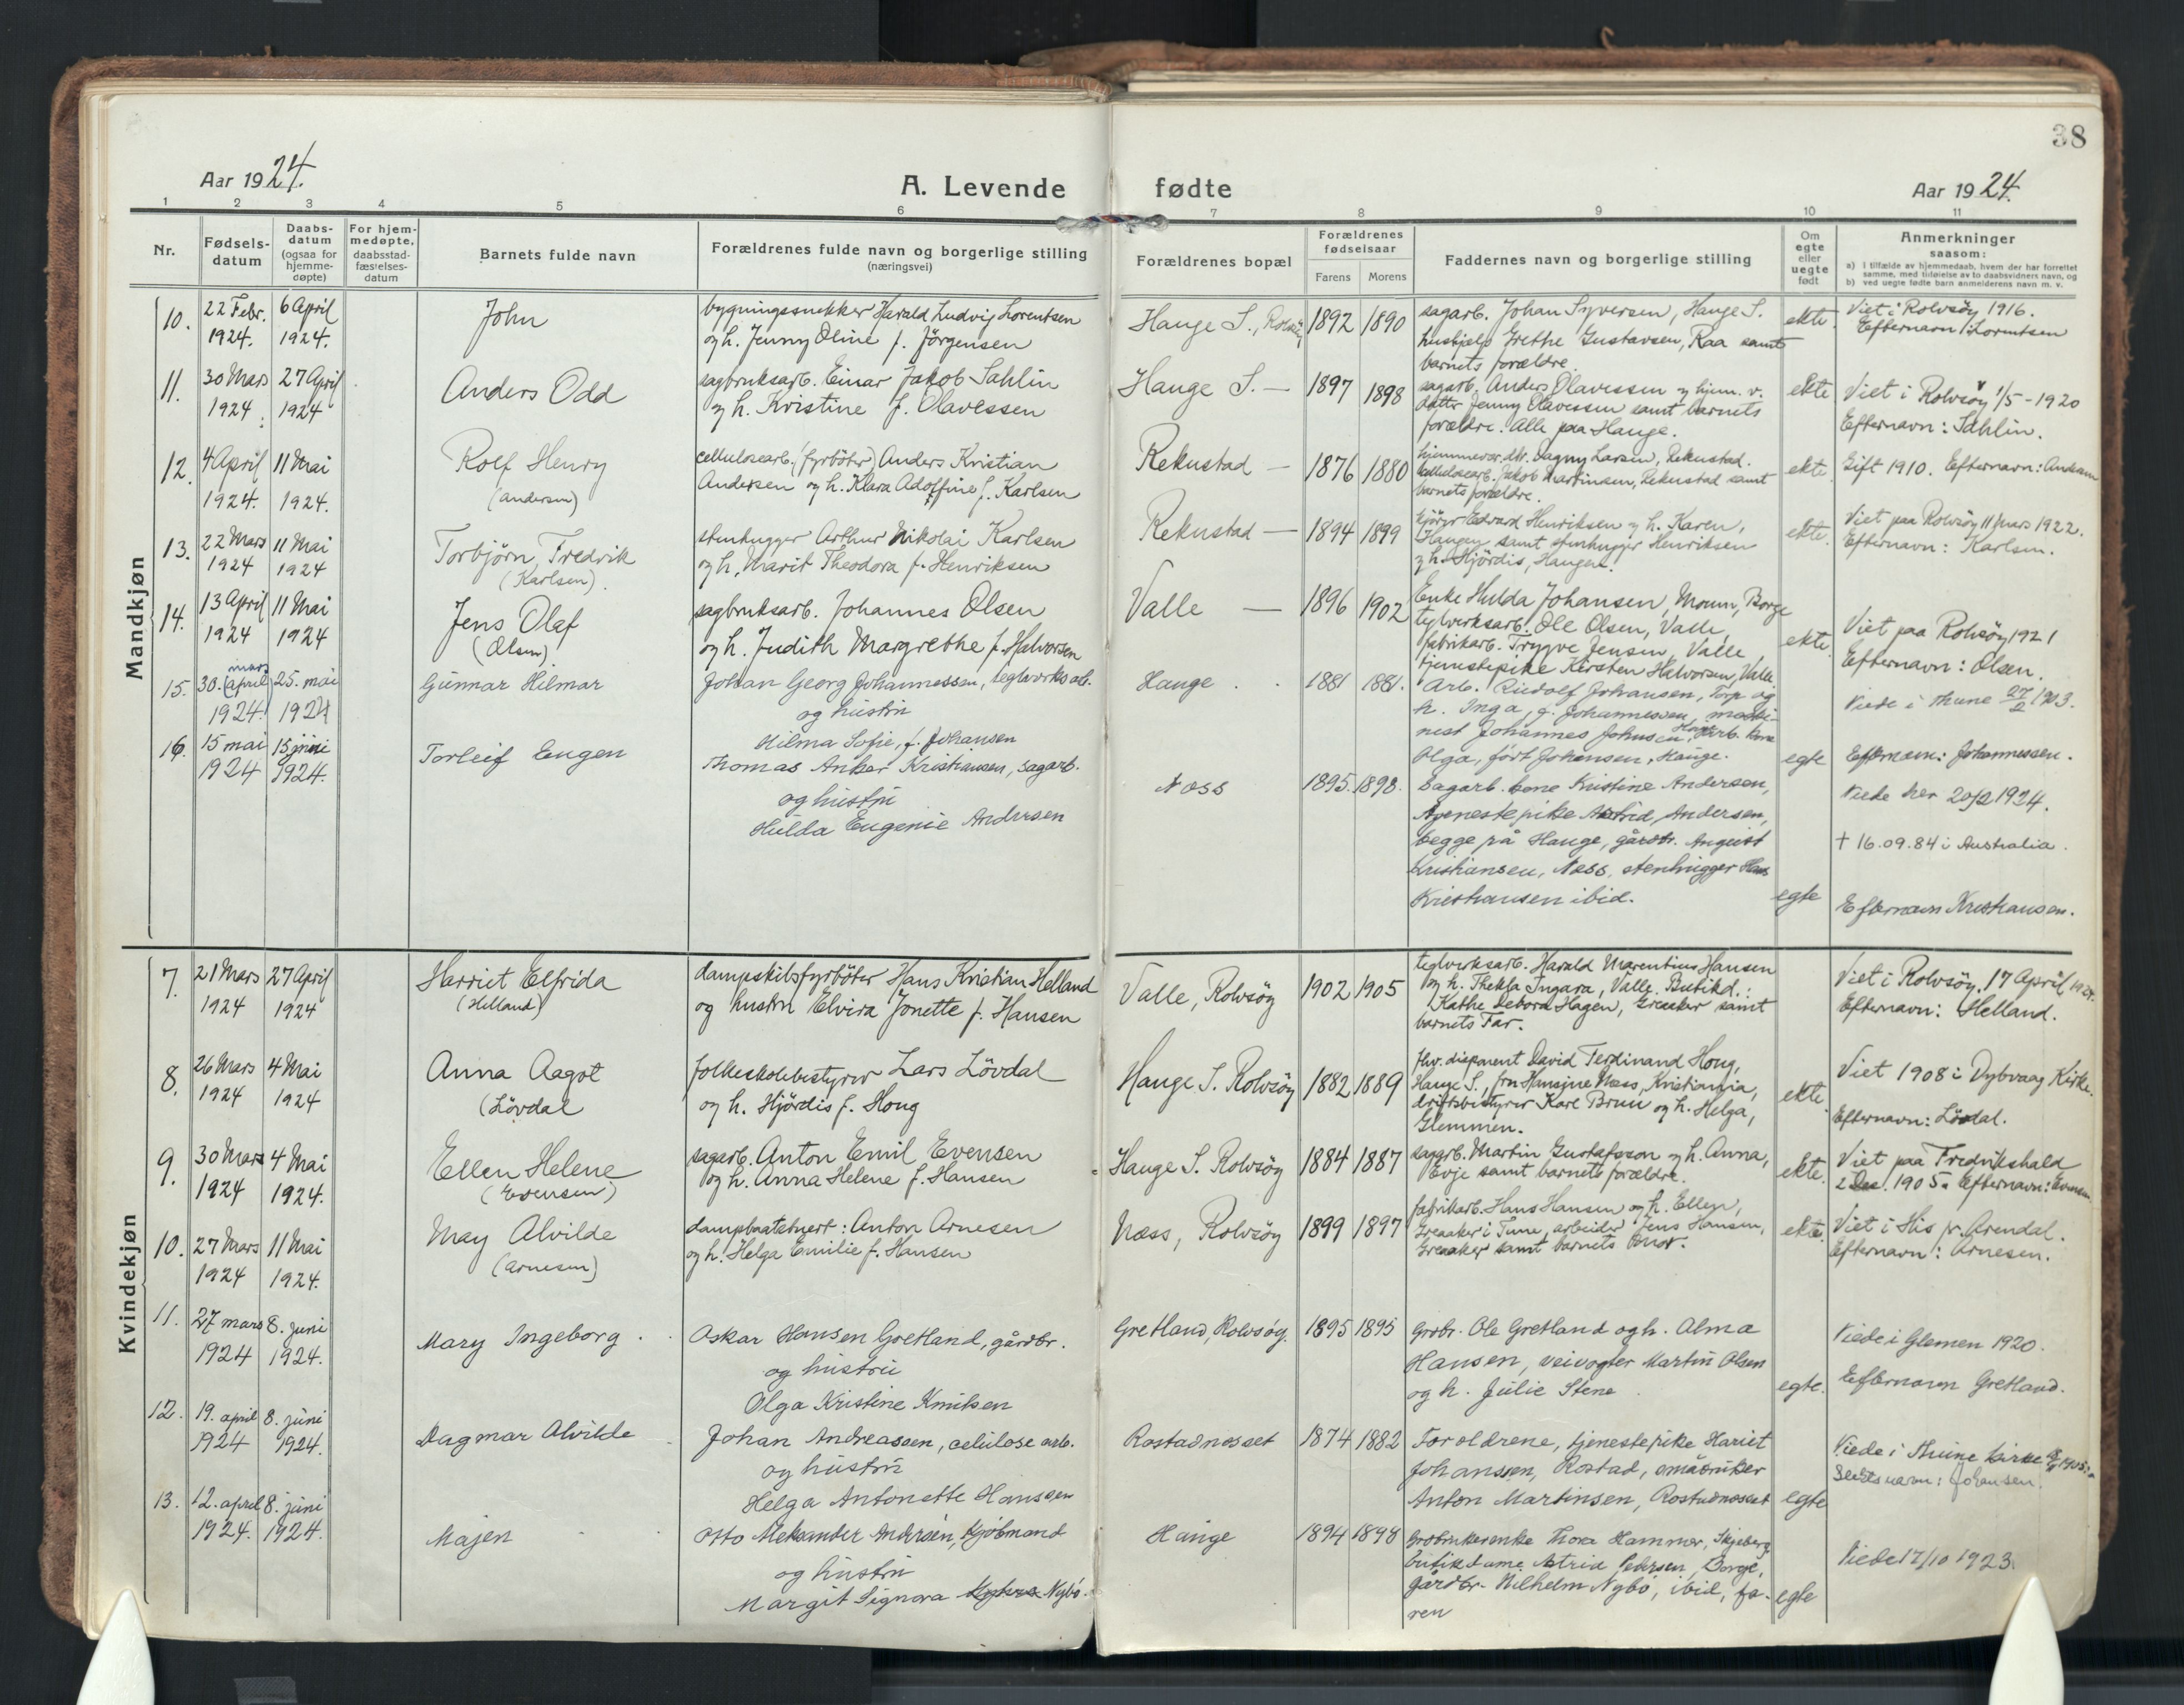 38
Aar 1924.
A. Levende fødte
Aar 1924.
1 2 3 4 5 6 7 8 9 10 11
Nr.
Fødsels-
datum
Daabs-
datum
(ogsaa for
hjemme-
døpte)
For hjem-
medøpte,
daabsstad-
fæstelses-
datum
Barnets fulde navn
Forældrenes fulde navn og borgerlige stilling
(næringsvei)
Forældrenes bopæl
Forældrenes
fødselsaar
Farens Morens
Faddernes navn og borgerlige stilling
Om
egte
eller
uegte
født
Anmerkninger
saasom:
a) i tilfælde av hjemmedaab, hvem der har forrettet
samme, med tilføielse av to daabsvidners navn, og
b) ved uegte fødte barn anmelderens navn m. v.
Mandkjøn
10. 22 Febr. 1924. 6 April 1924.
John
bygningssnekker Harald Ludvig Lorentsen
og h. Jenny Oline f. Jörgensen
Hauge S., Rolvsöy
1892 1890
sagarb. Johan Syversen, Hauge S.
hushjelp Grethe Gustavsen, Raa samt
barnets forældre.
ekte.
Viet i Rolvsöy 1916.
Efternavn: Lorentsen
11. 30 Mars 1924. 27 April 1924
Anders Odd
sagbruksarb. Einar Jakob Sahlin
og h. Kristine f. Olavessen
Hauge S. —
1897 1898
sagarb. Anders Olavessen og hjem. v.
datter Jenny Olavessen samt barnets
forældre. Alle paa Hauge.
ekte
Viet i Rolvsöy 1/5-1920
Efternavn: Sahlin.
12. 4 April 1924. 11 Mai 1924.
Rolf Henry
(Andersen)
cellulosearb. (fyrböter) Anders Kristian
Andersen og h. Klara Adolfine f. Karlsen
Rekustad —
1876 1880
hjemmevær. dtr. Dagny Larsen, Rekustad.
cellulosearb. Jakob Martinsen, Rekustad samt
barnets forældre.
ekte.
Gift 1910. Efternavn: Andersen
13. 22 Mars 1924 11 Mai 1924
Torbjörn Fredrik
(Karlsen).
stenhugger Arthur Nikolai Karlsen
og h. Marit Theodora f. Henriksen
Rekustad —
1894 1899
kjörer Edvard Henriksen og h. Karen,
Haugen samt stenhugger Henriksen
og h. Hjördis, Haugen.
ekte.
Viet paa Rolvsöy 11 Mars 1922.
Efternavn: Karlsen.
14. 13 April 1924 11 Mai 1924
Jens Olaf
(Olsen).
sagbruksarb. Johannes Olsen
og h. Judith Margrethe f. Halvorsen
Valle —
1896 1902
Enke Hulda Johansen, Moum, Borge
teglverksarb. Ole Olsen, Valle,
fabrikarb. Trygve Jensen, Valle,
tjenestepike Kirsten Halvorsen, Valle
ekte.
Viet paa Rolvsöy 1921
Efternavn: Olsen.
15. 30. mars (april) 1924. 25. mai 1924
Gunnar Hilmar
Johan Georg Johannessen, teglverksarb.
og hustru
Hilma Sofie, f. Johansen
Hauge
1881 1881.
Arb. Rudolf Johansen, Torp og
h. Inga, f. Johannessen, maski-
nist Johannes Johnsen,
Olga, født Johansen, Hauge.
egte
Viede i Thune 27/2 1903.
Efternavn: Johannessen.
16. 15 mai 1924 15 juni 1924.
Torleif Eugen
Thomas Anker Kristiansen, sagarb.
og hustru
Hulda Eugenie Andersen
Næss
1895. 1898.
Sagarb. kone Kristine Andersen,
tjenestepike Astrid Andersen,
begge på Hauge, gårdbr. August
Kristiansen, Næss, stenhugger Hans
Kristiansen ibid.
egte
Viede her 20/2 1924.
+ 16.09.84 i Australia.
Efternavn Kristiansen.
Kvindekjøn
7. 21 Mars 1924 27 April 1924
Harriet Elfrida
(Helland)
dampskibsfyrböter Hans Kristian Helland
og hustru Elvira Jonette f. Hansen
Valle, Rolvsöy
1902 1905
teglverksarb. Harald Marentius Hansen
og h. Thekla Ingara, Valle. Butikd.:
Kathe Debora Hagen, Greaaker samt
barnets Far.
Viet i Rolvsöy, 17 April 1924.
Efternavn: Helland.
8. 26 Mars 1924 4 Mai 1924
Anna Aagot
(Lövdal
folkeskolebestyrer Lars Lövdal
og h. Hjördis f. Houg
Hauge S. Rolvsöy
1882 1889
fhv. disponent David Ferdinand Houg,
Hauge S., fru Hansine Næss, Kristiania,
driftsbestyrer Karl Bruu og h. Helga,
Glemmen.
ekte.
Viet 1908 i Dybvaag Kirke.
Efternavn: Lövdal.
9. 30 Mars 1924 4 Mai 1924.
Ellen Helene
(Evensen)
sagarb. Anton Emil Evensen
og h. Anna Helene f. Hansen
Hauge S. Rolvsöy
1884 1887
sagarb. Martin Gustafsson og h. Anna,
Evje samt barnets forældre.
ekte.
Viet paa Fredrikshald
2 Dec. 1905. Efternavn: Evensen.
10. 27 Mars 1924 11 Mai 1924.
May Alvilde
(Arnesen)
dampbaatstuert: Anton Arnesen
og h. Helga Emilie f. Hansen
Næss, Rolvsöy
1899 1897
fabrikarb. Hans Hansen og h. Ellen,
Greaaker i Tune, arbeider Jens Hansen,
Greaaker samt barnets Mor.
ekte.
Viet i His pr. Arendal.
Efternavn: Arnesen.
11. 27 mars 1924 8. juni 1924.
Mary Ingeborg
Oskar Hansen Gretland, gårdbr.
og hustru
Olga Kristine Knutsen
Gretland, Rolvsöy.
1895 1895
Grdbr. Ole Gretland og h. Alma
Hansen, veivogter Martin Olsen
og h. Julie Stene
egte.
Viede i Glemen 1920.
Efternavn Gretland.
12. 19. april 1924 8. juni 1924.
Dagmar Alvilde
Johan Andreassen, celulose arb.
og hustru
Helga Antonette Hanssen
Rostadnesset
1874 1882
Foreldrene, tjenestepike Hariet
Johansen, Rostad, småbruker
Anton Martinsen, Rostadneset
egte
Viede i Thune kirke
Slektsnavn: Johansen.
13. 12. april 1924. 8. juni 1924.
Majen
Otto Aleksander Andersen, Kjöbmand
og hustru
Margit Signora Nybö.
Hauge
1894 1898
Grdbrukerenke Thora Hammer, Skjeberg,
butikdame Astrid Pedersen, Borge,
gårdbr. Vilhelm Nybö, ibid, fa-
ren
egte
Viede 17/10 1923.